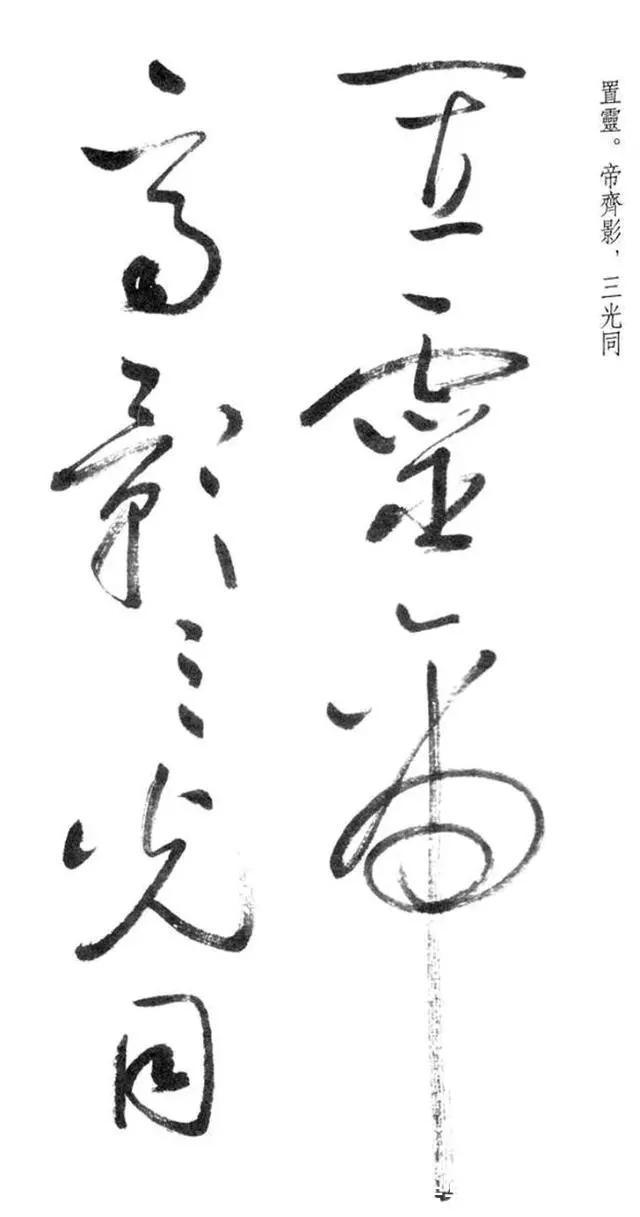 置靈。帝齊影，三光同
置靈帝
齊影三光同